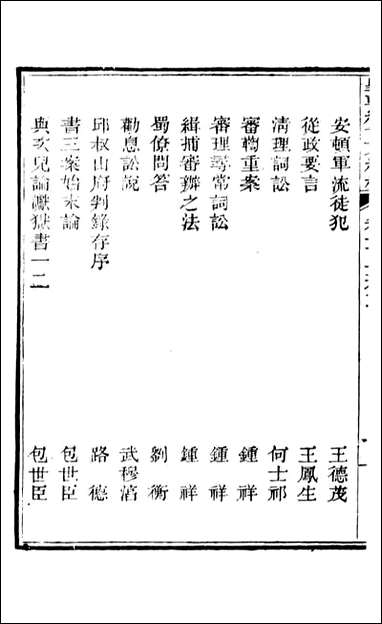 安頓軍流徒犯 王德茂
從政要言 王鳳生
清理詞訟 何士祁
審轉重案 鍾祥
審理尋常詞訟 鍾祥
緝捕審辦之法 鍾祥
蜀僚問答 劉衡
勸息訟說 武穆淳
邱叔山府判錄存序 路德
書三案始末論 包世臣
與次兒論讞獄書一二 包世臣